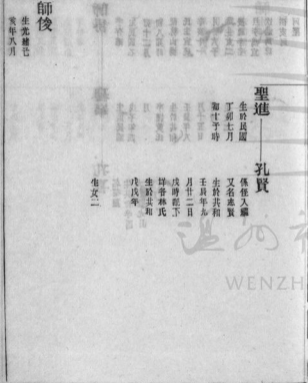 聖進
生於民國
丁卯七月
初十子時
孔賢
係侄入繼
又名忠賢
生於共和
壬辰年九
月廿二日
戌時配下
垟者林氏
生於共和
戊戌年
生女二
師俊
生光緒己
亥年八月
WENZHO